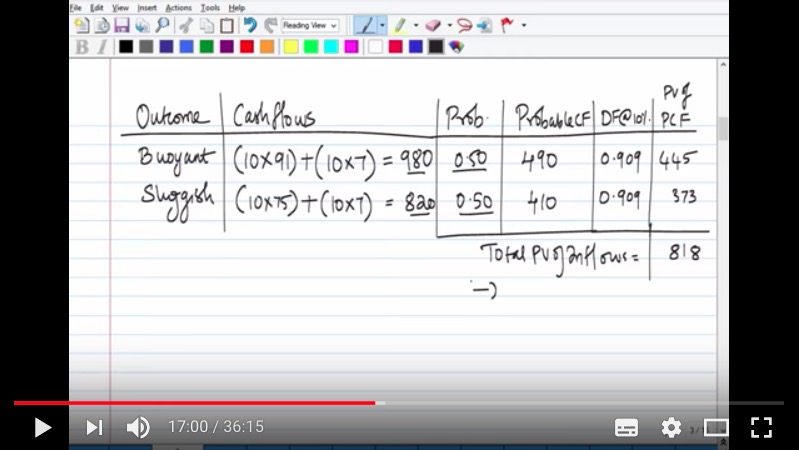 File Edit View Insert Actions Tools Help
Reading View
B I
Outcome Cashflows Prob. Probable CF DF@10%. PV of PCF
Buoyant (10×91)+(10×7) = 980 0.50 490 0.909 445
Sluggish (10×75)+(10×7) = 820 0.50 410 0.909 373
Total PV of Inflows = 818
(-)
17:00 / 36:15